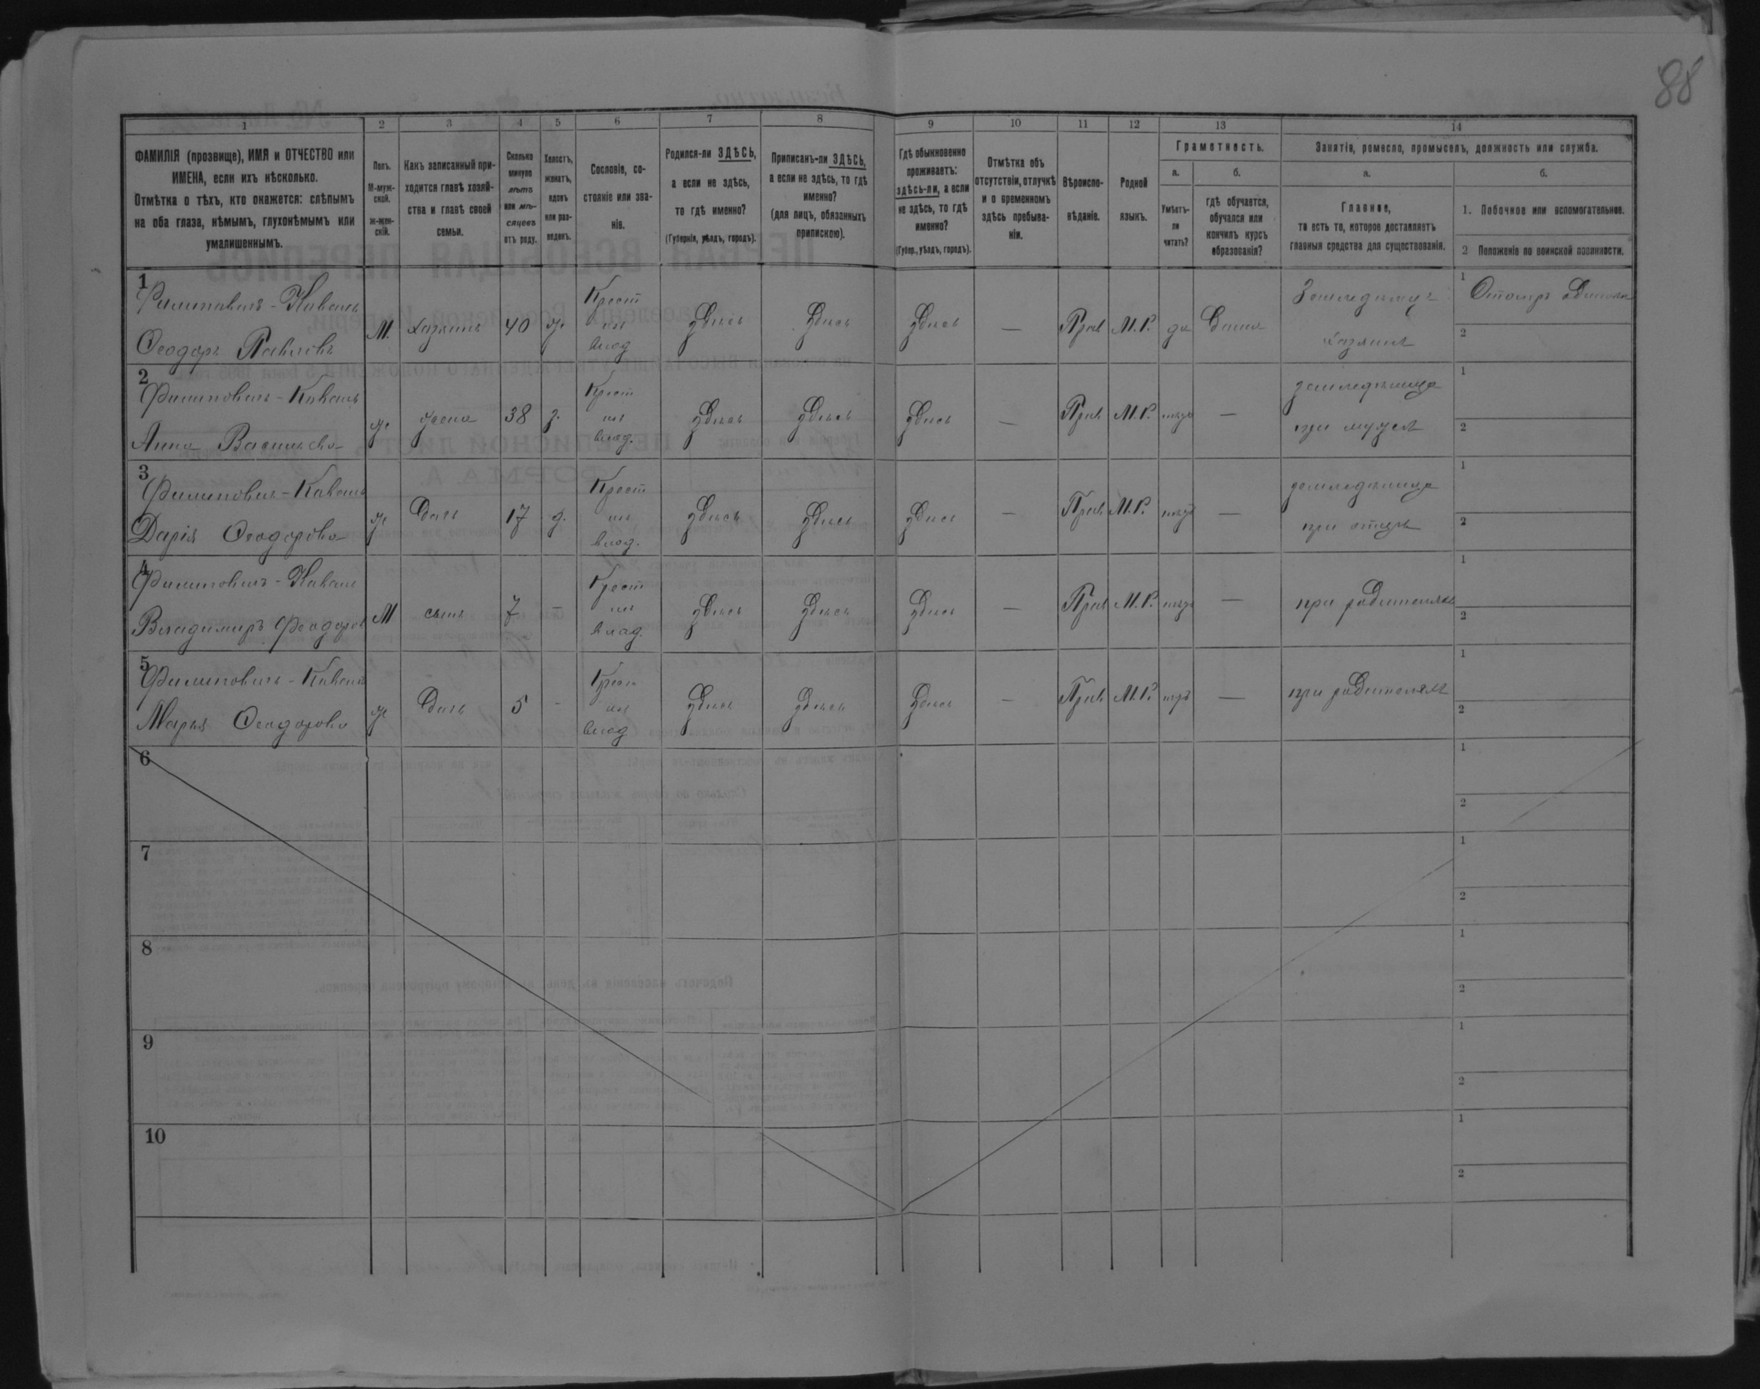 88
1 2 3 4 5 6 7 8 9 10 11 12 13 14
ФАМИЛІЯ (прозвище), ИМЯ и ОТЧЕСТВО или
ИМЕНА, если ихъ нѣсколько.
Отмѣтка о тѣхъ, кто окажется: слѣпымъ
на оба глаза, нѣмымъ, глухонѣмымъ или
умалишеннымъ.
Полъ.
М-муж-
ской.
ж-жен-
скій.
Какъ записанный при-
ходится главѣ хозяй-
ства и главѣ своей
семьи.
Сколько
минуло
лѣтъ
или мѣ-
сяцевъ
отъ роду.
Холостъ,
женатъ,
вдовъ
или раз-
веденъ.
Сословіе, со-
стояніе или зва-
ніе.
Родился-ли ЗДѢСЬ,
а если не здѣсь,
то гдѣ именно?
(Губернія, уѣздъ, городъ).
Приписанъ-ли ЗДѢСЬ,
а если не здѣсь, то гдѣ
именно?
(для лицъ, обязанныхъ
припискою).
Гдѣ обыкновенно
проживаетъ:
здѣсь-ли, а если
не здѣсь, то гдѣ
именно?
(Губер., уѣздъ, городъ).
Отмѣтка объ
отсутствіи, отлучкѣ
и о временномъ
здѣсь пребыва-
ніи.
Вѣроиспо-
вѣданіе.
Родной
языкъ.
Грамотность.
а.
Умѣетъ-
ли
читать?
б.
гдѣ обучается,
обучался или
кончилъ курсъ
образованія?
Занятіе, ремесло, промыселъ, должность или служба.
а.
Главное,
то есть то, которое доставляетъ
главныя средства для существованія.
б.
1. Побочное или вспомогательное.
2 Положеніе по воинской повинности.
1
Филиповичъ-Коваль
Ѳеодоръ Павловъ
М. хозяинъ 40 ж.
Крест
из
влад
здесь здесь здесь — Прав М.Р. да
хозяинъ
1
2
2
Филиповичъ-Коваль
Анна Васильева
ж жена 38 з.
Крест
из
влад.
здесь здесь здесь — Прав М.Р. нетъ —
земледелица
при мужѣ
1
2
3
Филиповичъ-Коваль
Дарія Ѳеодорова
ж дочь 17 д.
Крест
из
влад.
здесь здесь здесь — Прав М.Р. нетъ —
земледелица
при отцѣ
1
2
4
Филиповичъ-Коваль
Владимиръ Ѳеодоров
М сынъ 7 –
Крест
из
влад.
здесь здесь здесь — Прав М.Р. нетъ —
при родителяхъ
1
2
5
Филиповичъ-Коваль
Марья Ѳеодорова
ж дочь 5 –
Крест
из
влад
здесь здесь здесь — Прав М.Р. нетъ —
при родителяхъ
1
2
6
1
2
7
1
2
8
1
2
9
1
2
10
1
2